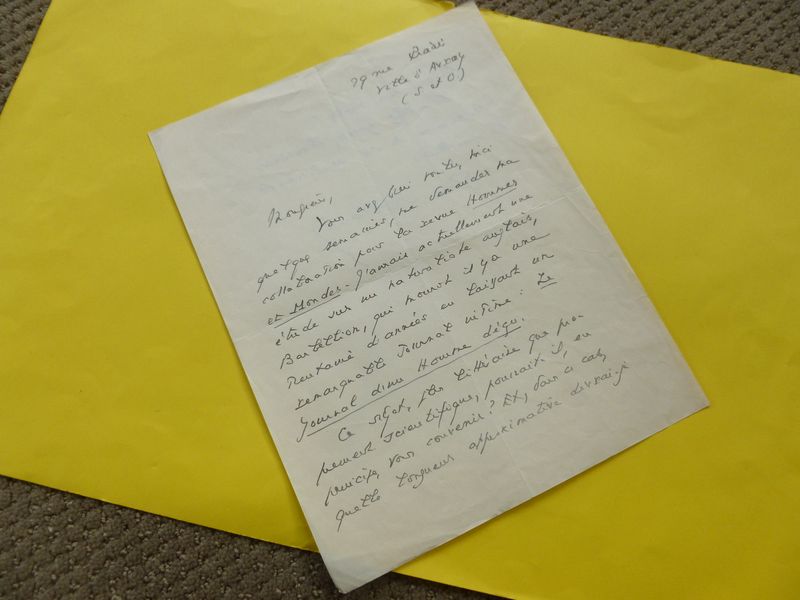 rue Pradier
Ville d'Avray
(S et O)
Monsieur,
Vous avez bien voulu, voici
quelques semaines, me demander ma
collaboration pour la revue Hommes
et Mondes. J'aurais actuellement une
étude sur un naturaliste anglais,
Barbellion, qui mourut il y a une
trentaine d'années en laissant un
remarquable Journal intime : Le
Journal d'un Homme déçu.
Ce sujet, plus littéraire que pro
prement scientifique, pourrait-il, en
principe, vous convenir ? Et, dans ce cas,
quelle longueur approximative devrai-je